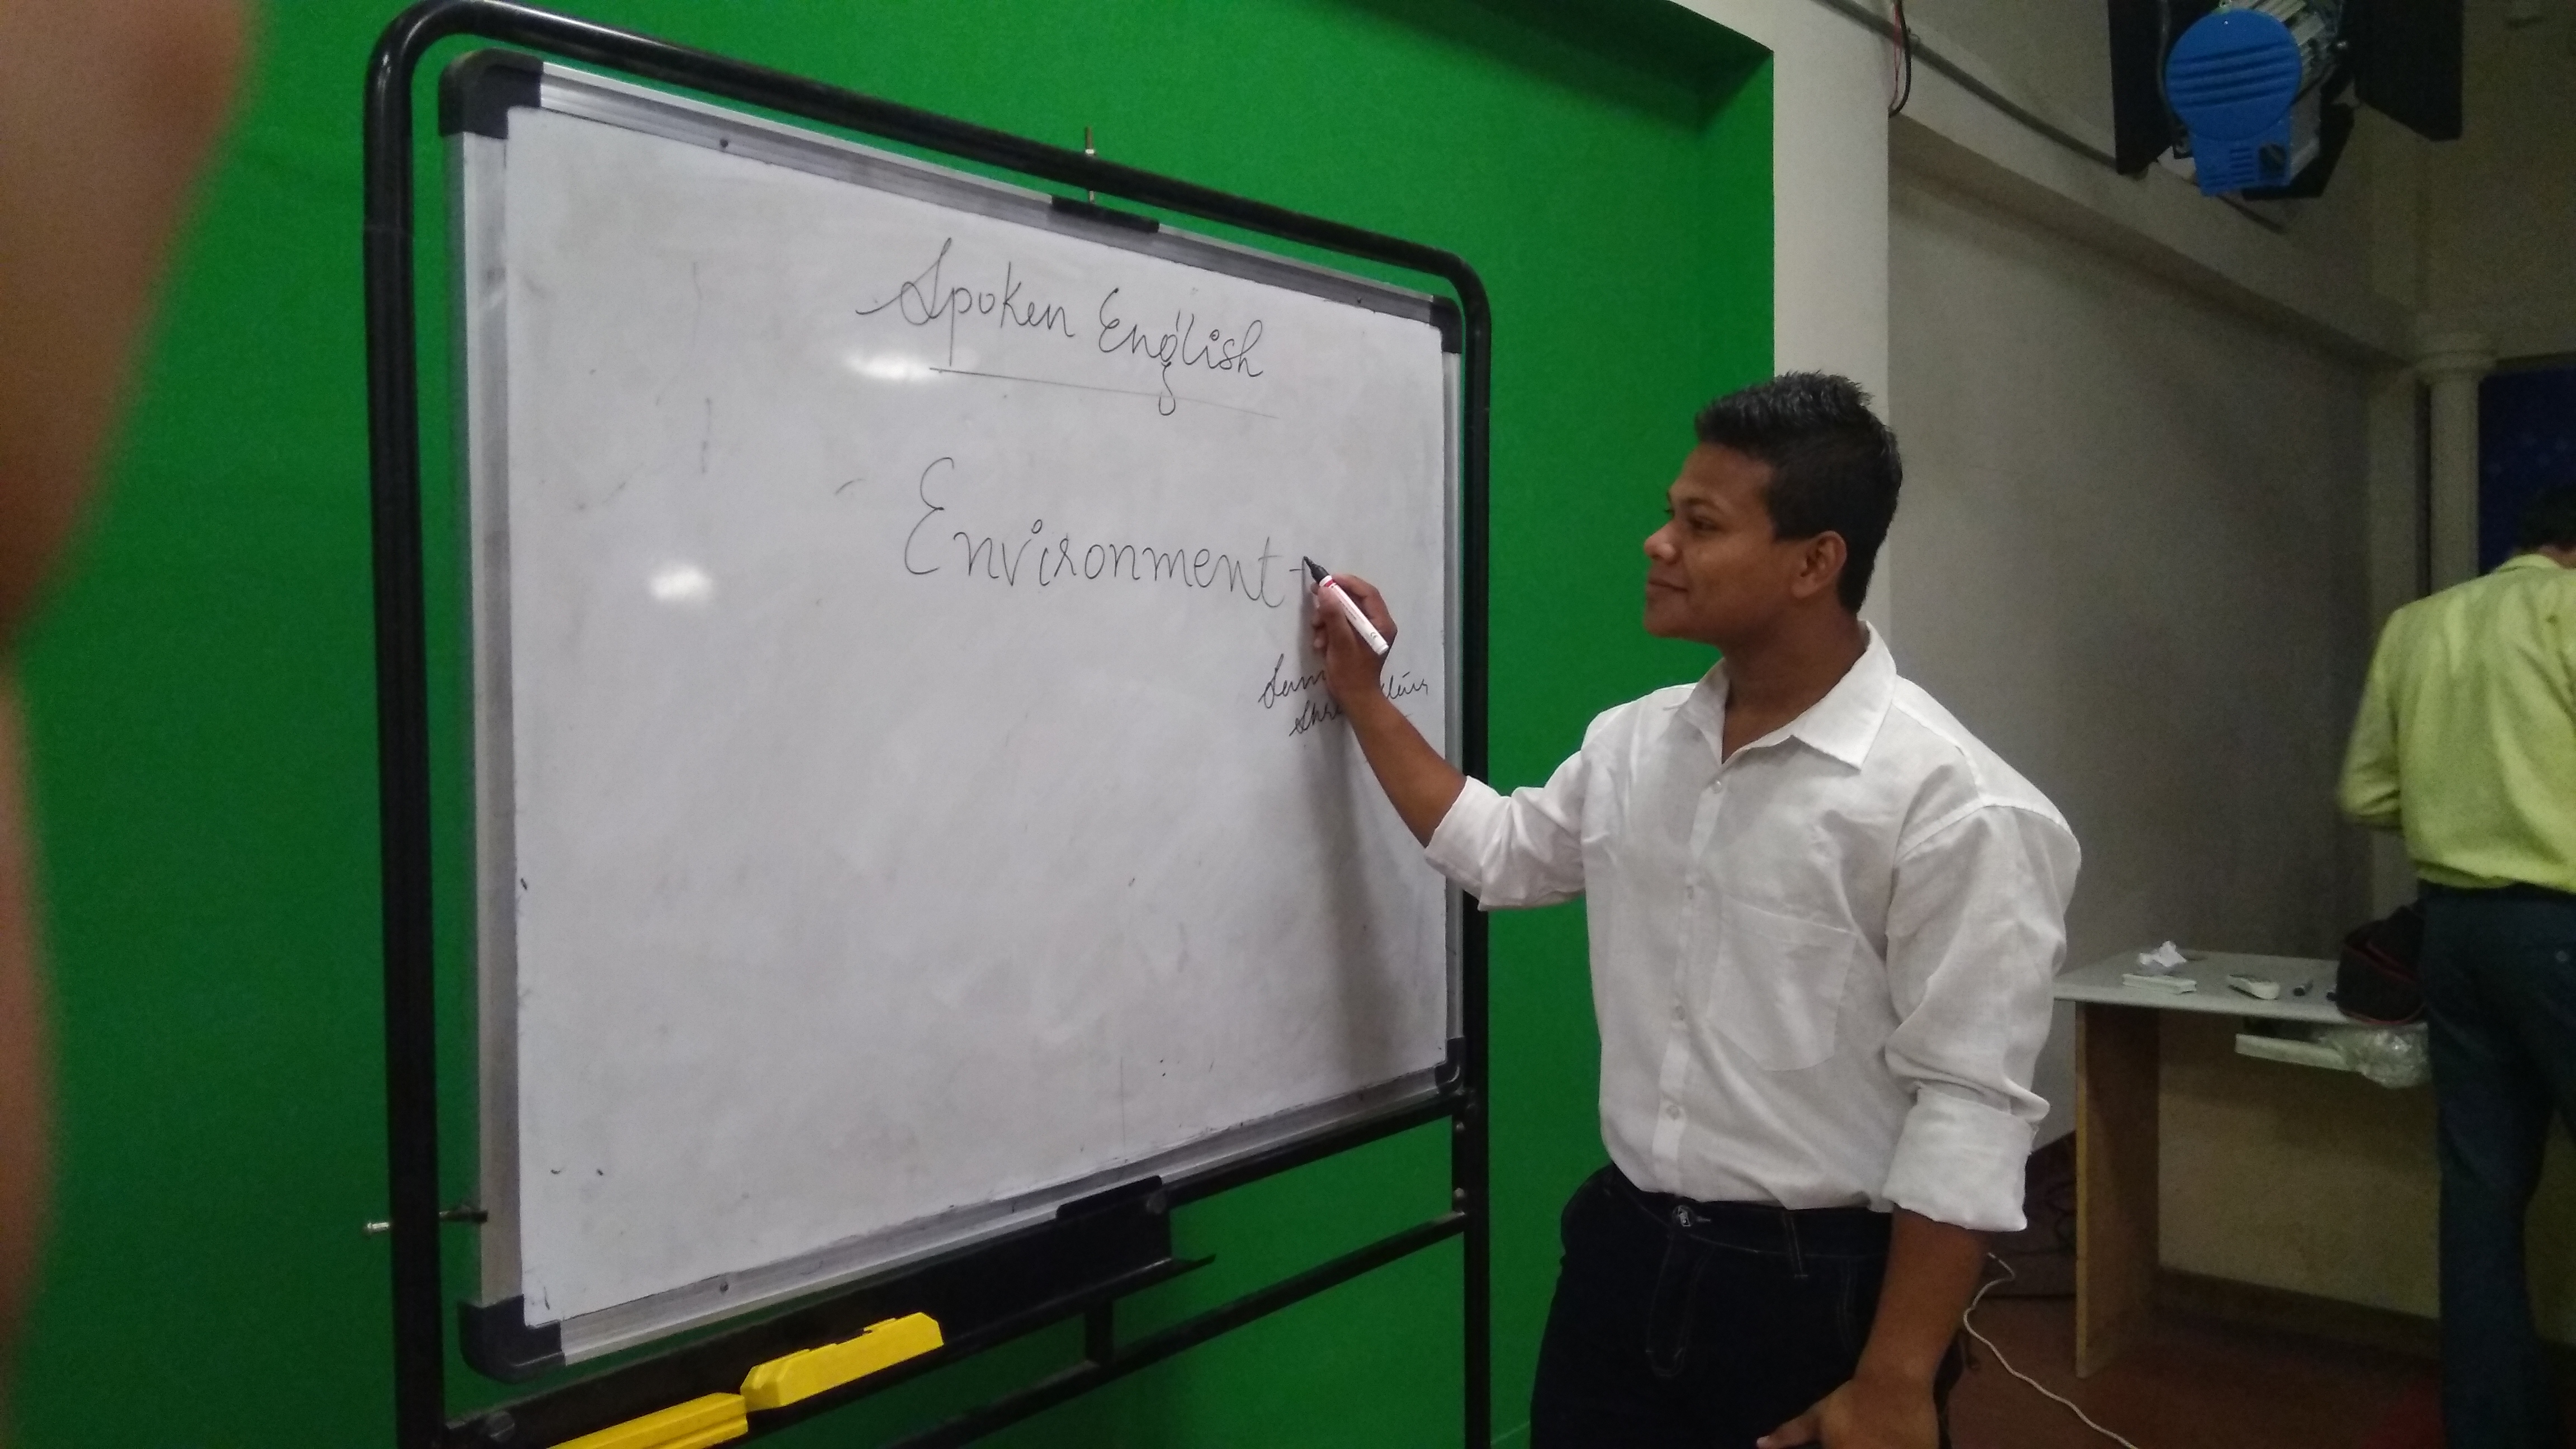 Spoken English
Environment -